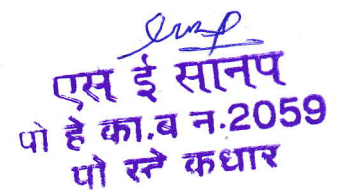 एस ई सानप
पो हे का.ब न.2059
पो स्टे कधार